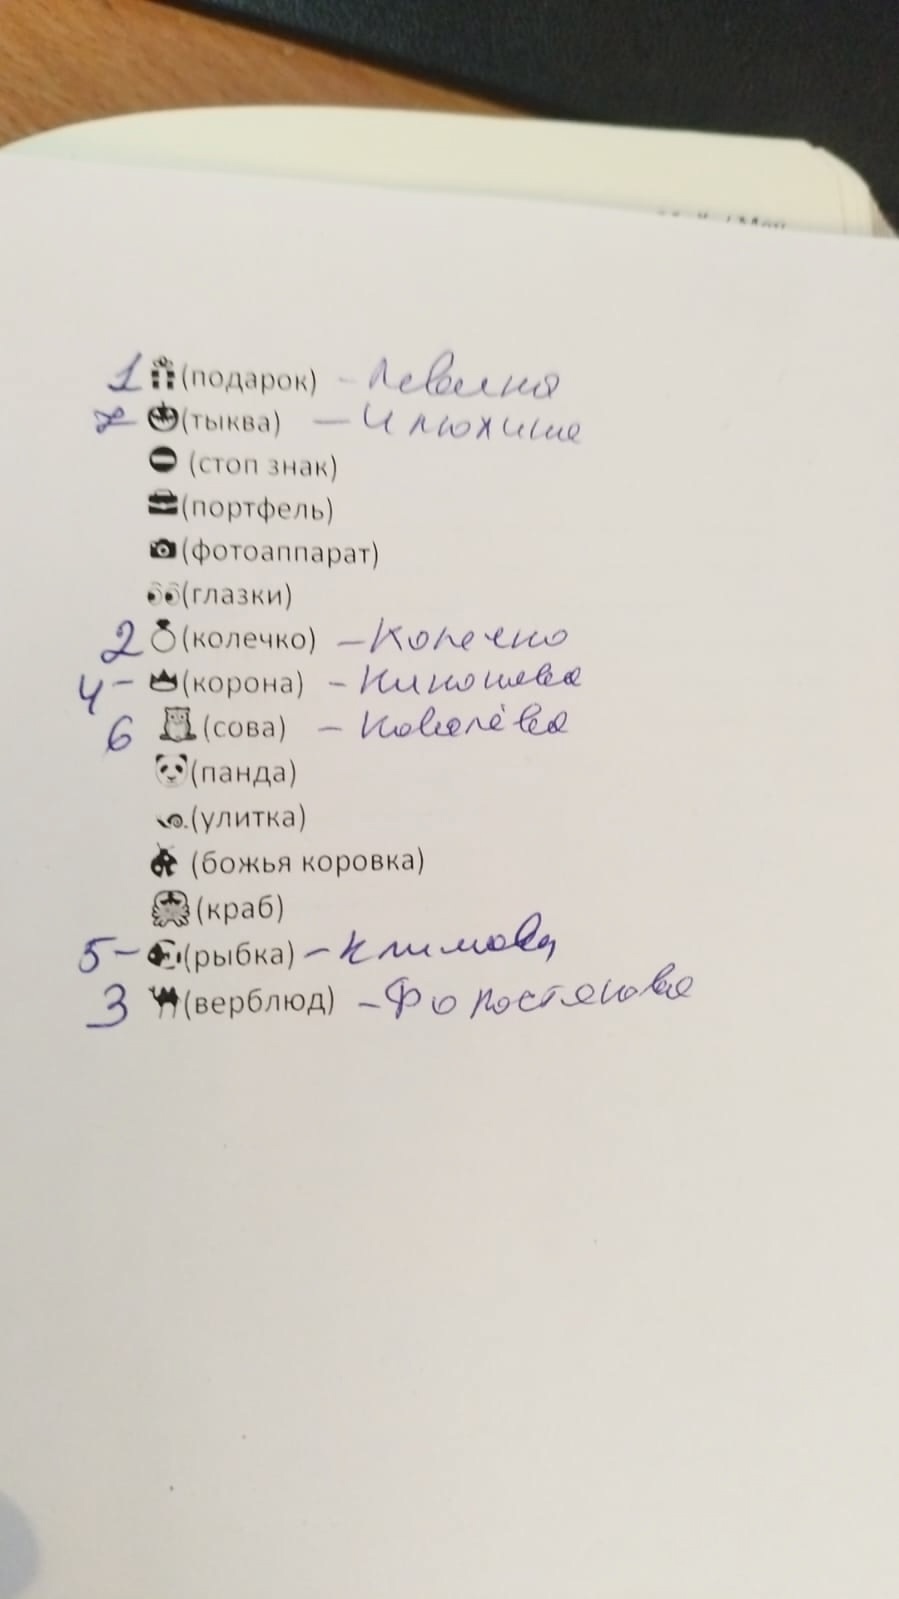 1 (подарок) -
(тыква) — Илюхине
(стоп знак)
(портфель)
(фотоаппарат)
(глазки)
2 (колечко) -
4 - (корона) -
6 (сова) - Ковалёва
(панда)
(улитка)
(божья коровка)
(краб)
5 - (рыбка) - Климова
3 (верблюд) - Форостянова